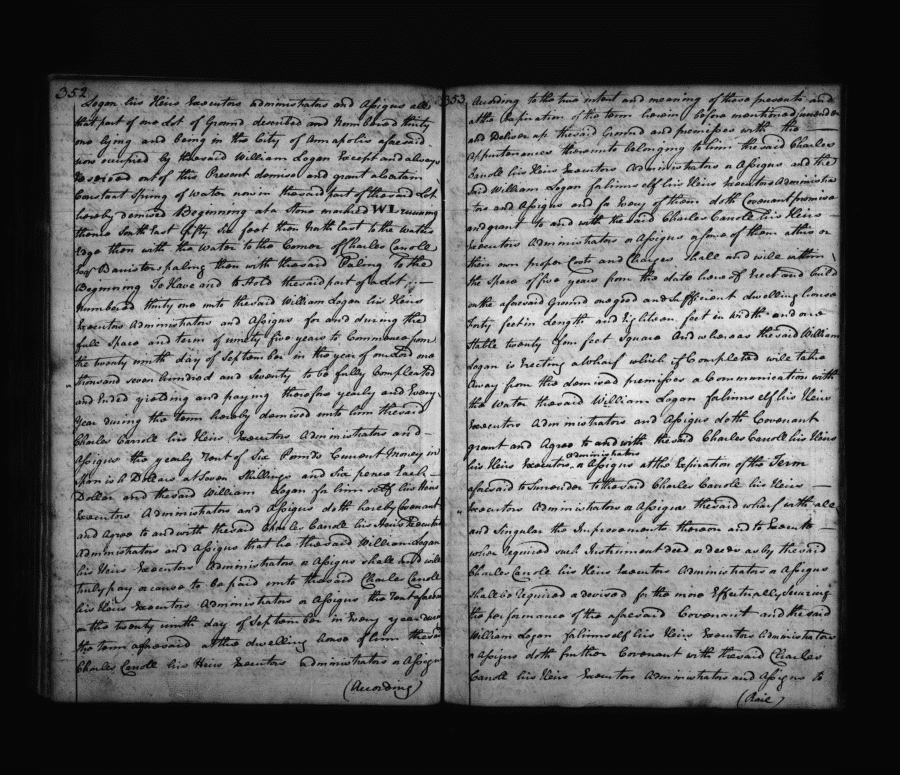 352
Logan his Heirs Executors administrators and Assigns all
that part of one Lot of Ground described and Numbered thirty
one lying and being in the City of Annapolis aforesaid
now occupied by the said William Logan Except and always
reserved out of this Present demise and grant a certain
Constant Spring of water now in the said part of the said Lot
hereby demised Beginning at a Stone marked WL running
thence South East fifty Six feet then North East to the Waters
Edge then with the Water to the Corner of Charles Carroll
Banisters paling then with the said Paling To the
Beginning To Have and to Hold the said part of a Lot
numbered thirty one unto the said William Logan his Heirs
Executors Administrators and Assigns for and during the
full Space and term of ninety five years to Commence from
the twenty ninth day of September in the year of our Lord one
thousand seven hundred and Seventy to be fully Compleated
and Ended yielding and paying therefor yearly and Every
Year during the term hereby demised unto him the said
Charles Carroll his Heirs Executors Administrators and
Assigns the yearly rent of Six Pounds Current Money in
Dollars at Seven Shillings and Six pence Each
Dollar and the said William Logan for himself his Heirs
Executors Administrators and Assigns doth hereby Covenant
and Agree to and with the said Charles Carroll his Heirs Executors
Administrators and Assigns that he the said William Logan
his Heirs Executors Administrators or Assigns shall and will
truly pay or cause to be paid unto the said Charles Carroll
his Heirs Executors Administrators or Assigns the rent aforesaid
on the twenty ninth day of September in Every year during
the term aforesaid at the dwelling house of him the said
Charles Carroll his Heirs Executors administrators or Assigns
(According)
353
According to the true intent and meaning of these presents and
at the Expiration of the term herein before mentioned surrender
and Deliver up the said Ground and premises with the
Appurtenances thereunto belonging to him the said Charles
Carroll his Heirs Executors Administrators or Assigns and the
said William Logan for himself his Heirs Executors Administra
tors and Assigns and for Every of them doth Covenant promise
and grant to and with the said Charles Carroll his Heirs
Executors Administrators or Assigns some of them at his or
their own proper Costs and Charges shall and will within
the Space of five years from the date hereof Erect and build
on the aforesaid Ground one good and Sufficient dwelling house
forty feet in Length and Eighteen feet in width and one
Stable twenty four feet Square And whereas the said William
Logan is Erecting a Wharf which if Completed will take
Away from the demised premisses a Communication with
the Water the said William Logan for himself his Heirs
Executors Administrators and Assigns doth Covenant
grant and Agree to and with the said Charles Carroll his Heirs
his Heirs Executors administrators or Assigns at the Expiration of the Term
aforesaid to Surrender to the said Charles Carroll his Heirs
Executors Administrators or Assigns the said wharf with all
and Singular the Improvements thereon and to Execute
when required such Instrument deed or deeds as by the said
Charles Carroll his Heirs Executors Administrators or Assigns
shall be required or devised for the more Effectually Securing
the performance of the aforesaid Covenant and the said
William Logan for himself his Heirs Executors Administrators
or Assigns doth further Covenant with the said Charles
Carroll his Heirs Executors Administrators and Assigns to
(Rail)